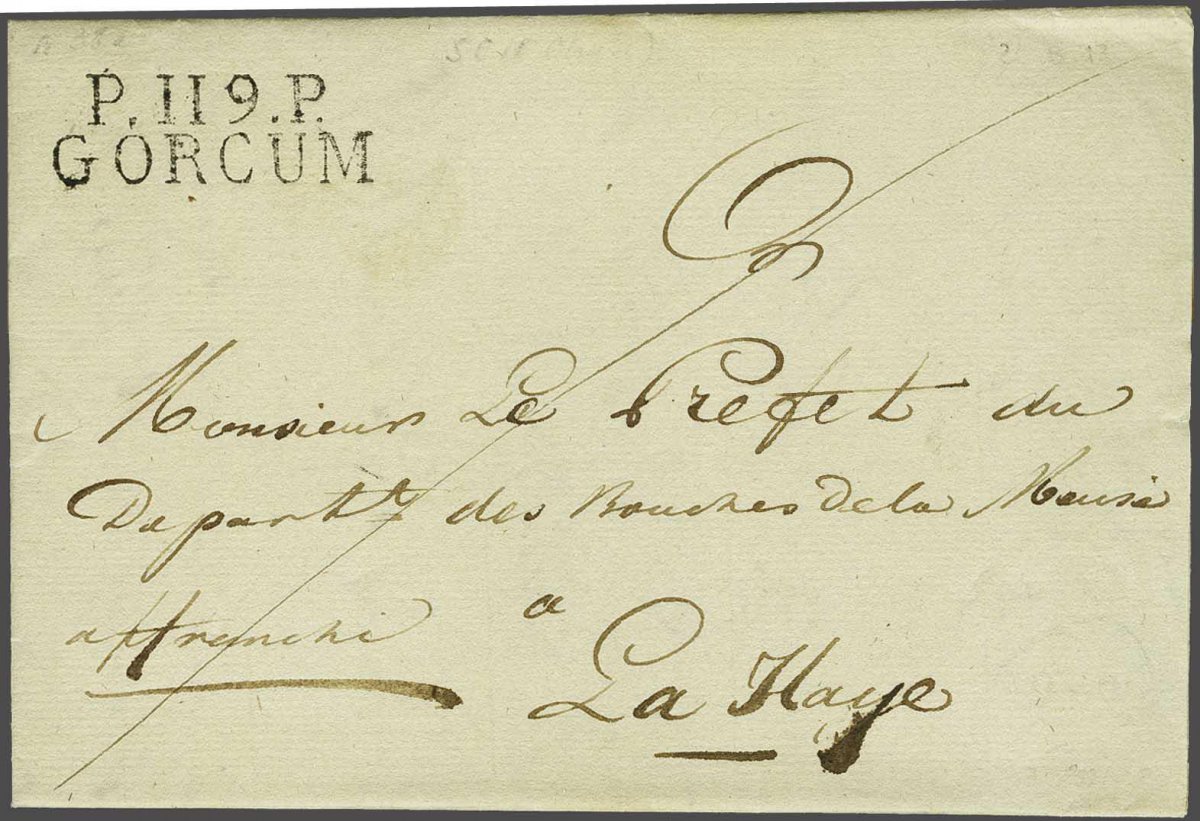 P.119.P.
GORCUM
Monsieur Le Prefet du
Depart.t des Bouches de la Meuse
affranchi a
La Haye